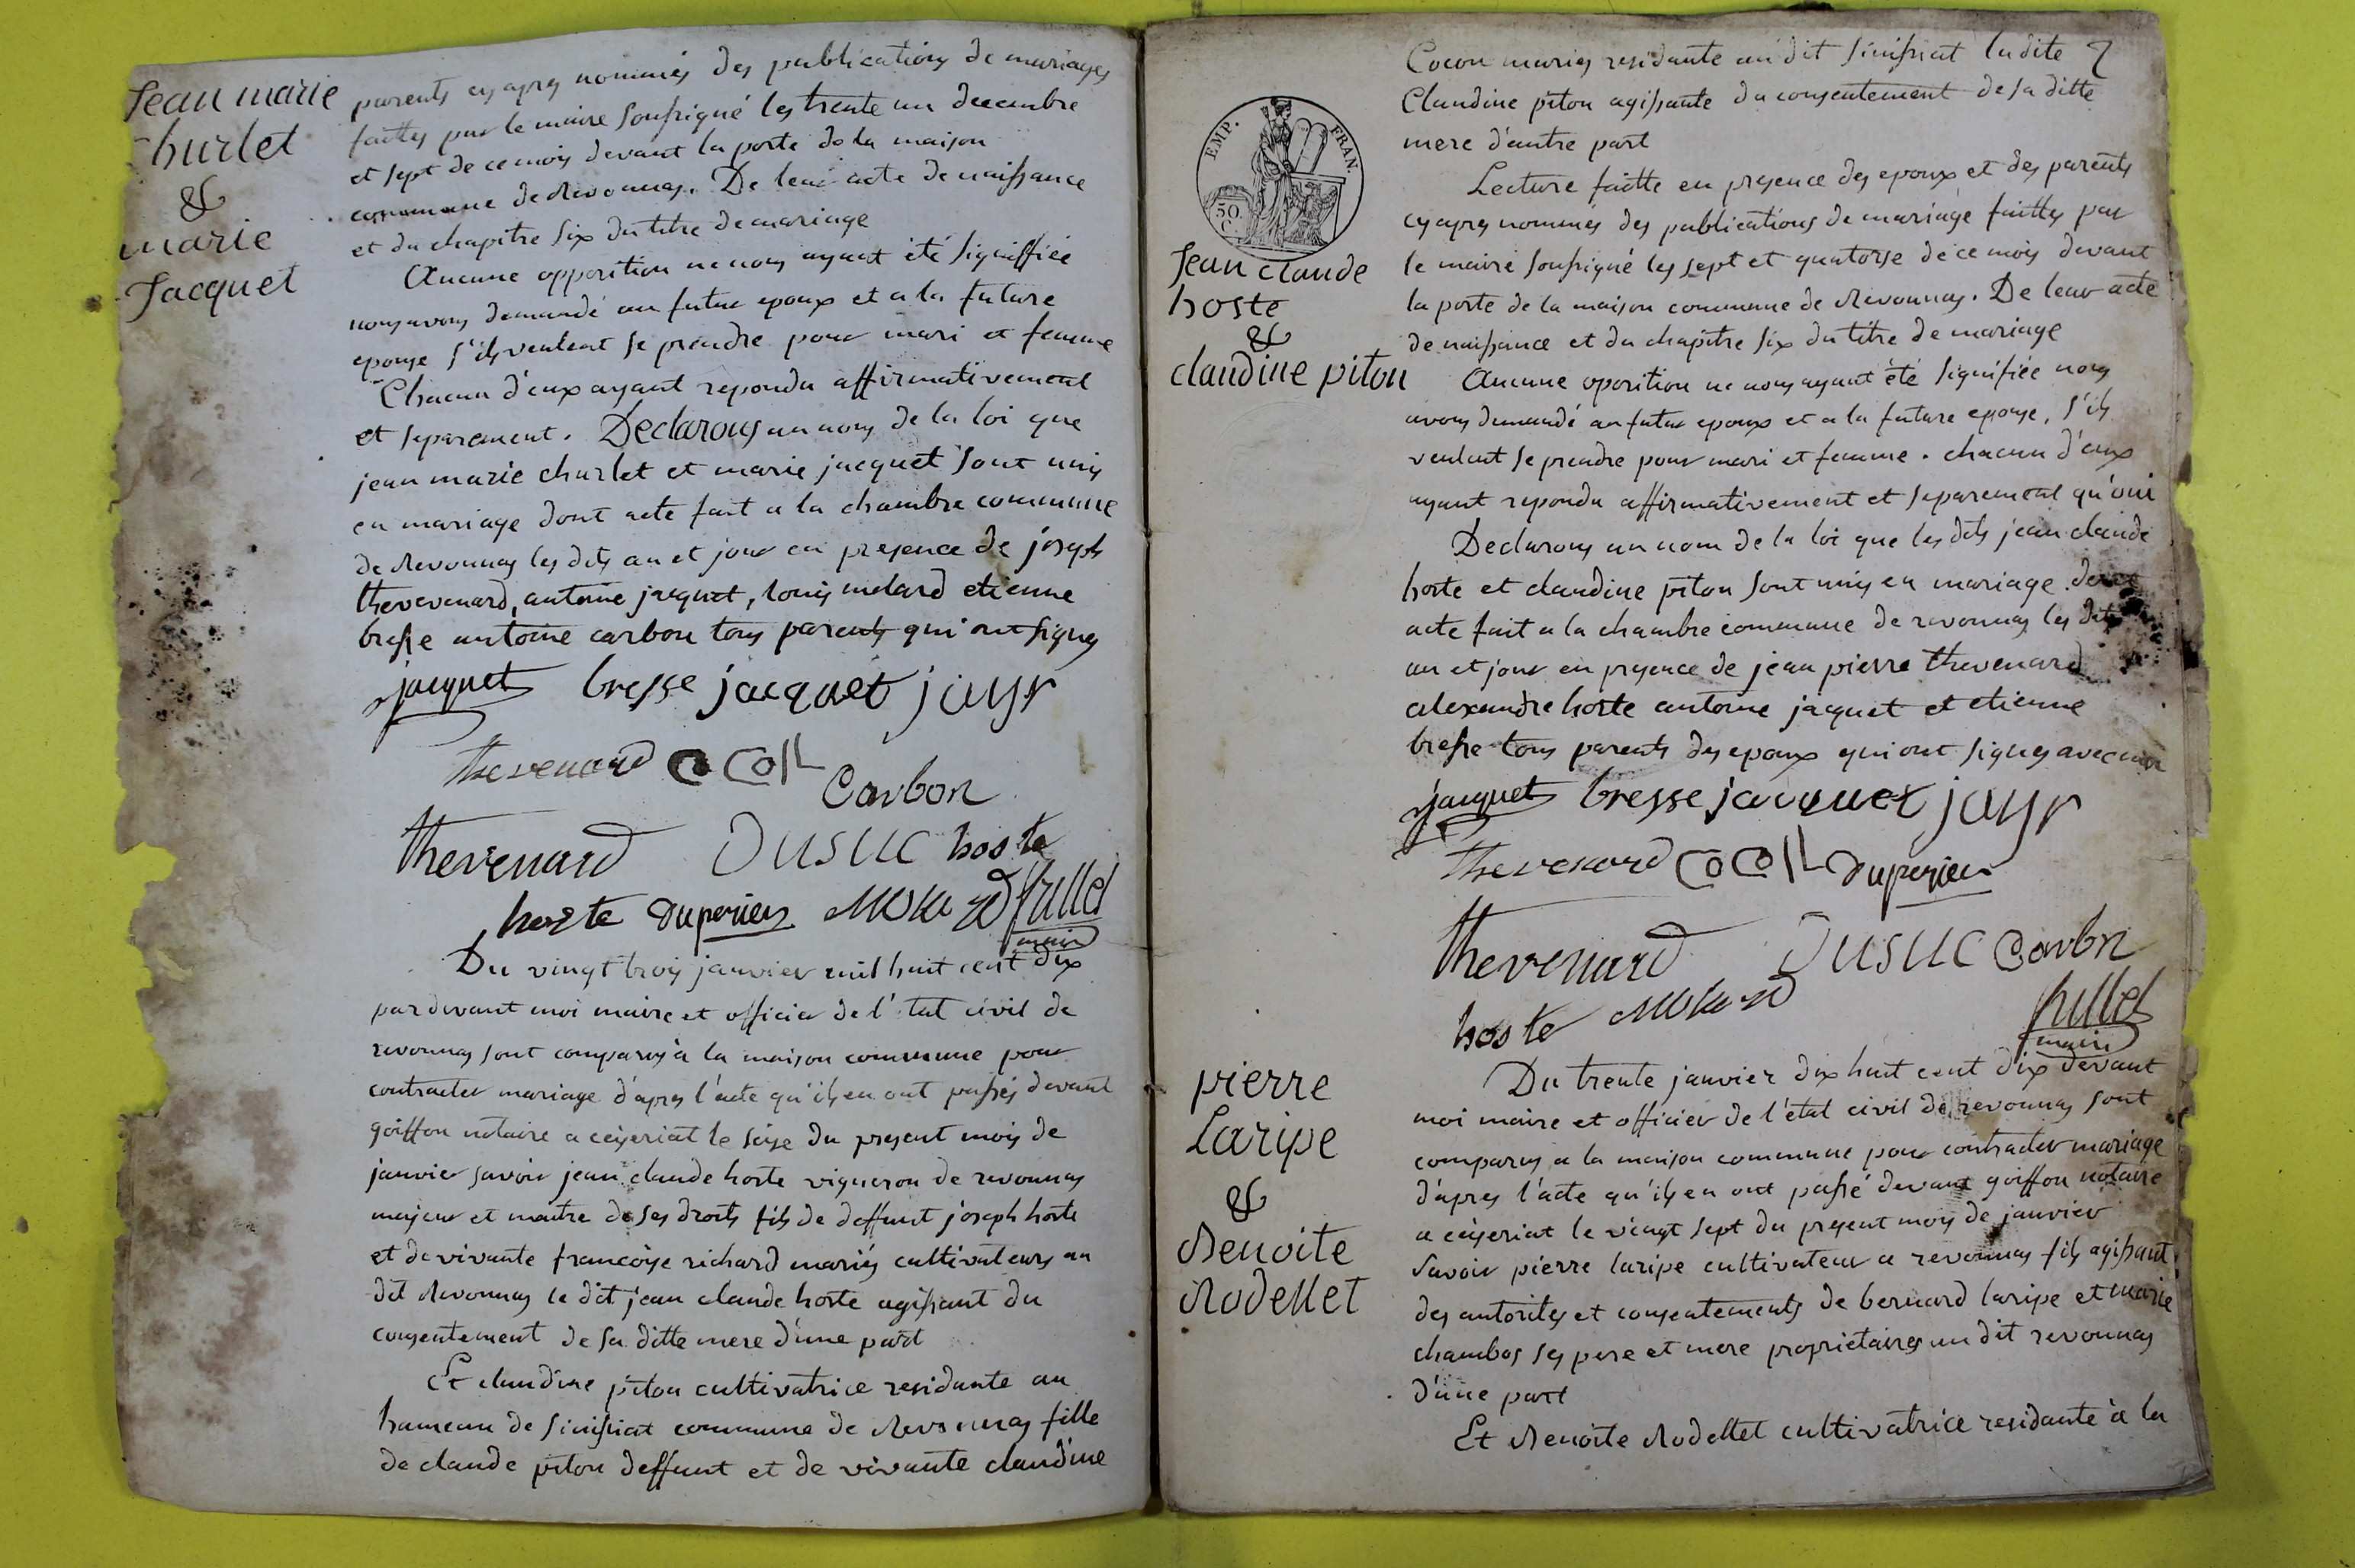 Jean marie
churlet
&
marie
Jacquet
parents cy apres nommés des publications de mariages
faittes par le maire soussigné les trente un decembre
et sept de ce mois devant la porte de la maison
commune de Revonnas. De leur acte de naissance
et du chapitre six du titre de mariage
Aucune opposition ne nous ayant été signiffiée
nous avons demandé au futur epoux et a la future
epouse s'ils veulent se prendre pour mari et femme
Chacun d'eux ayant repondu affirmativement
et separement. Declarons au nom de la loi que
jean marie churlet et marie jacquet sont unis
en mariage dont acte fait a la chambre commune
de Revonnas les dits an et jour en presence de joseph
thevenard, antoine jaquet, louis molard etienne
bresse antoine carbon tous parents qui ont signes
jacquet bresse jacquet jayr
thevenard cocoll
Carbon
thevenard Dusuc hoste
hoste duperier Molard fillet
maire
Du vingt trois janvier mil huit cent dix
par devant moi maire et officier de l'état civil de
revonnas sont comparus à la maison commune pour
contracter mariage d'apres l'acte qu'ils en ont passés devant
goiffon notaire a ceyseriat le seise du present mois de
janvier savoir jean claude hoste vigneron de revonnas
majeur et maitre de ses droits fils de deffunt joseph hoste
et de vivante francoise richard mariés cultivateurs au
dit Revonnas le dit jean claude hoste agissant du
consentement de sa ditte mere d'une part
Et claudine piton cultivatrice residante au
hameau de sinissiat commune de Revonnas fille
de claude piton deffunt et de vivante claudine
EMP. FRAN.
50.
C.
Jean claude
hoste
&
claudine piton
Cocon mariés residante au dit sinissiat ladite
Claudine piton agissante du consentement de sa ditte
mere d'autre part
Lecture faitte en presence des epoux et des parents
cy apres nommés des publications de mariage faittes par
le maire soussigné les sept et quatorse de ce mois devant
la porte de la maison commune de Revonnas. De leur acte
de naissance et du chapitre six du titre de mariage
Aucune oposition ne nous ayant été signifiée nous
avons demandé au futur epoux et a la future epouse, s'ils
veulent se prendre pour mari et femme. chacun d'eux
ayant repondu affirmativement et separement qu'oui
Declarons au nom de la loi que les dits jean claude
hoste et claudine piton sont unis en mariage dont
acte fait a la chambre commune de revonnas les dits
an et jour en presence de jean pierre thevenard
alexandre hoste antoine jaquet et etienne
bresse tous parents des epoux qui ont signes avec moi
jacquet bresse jacquet jayr
thevenard cocoll duperier
thevenard Dusuc Carbn
hoste Molard fillet
maire
pierre
Laripe
&
Benoite
Rodellet
Du trente janvier dix huit cent dix devant
moi maire et officier de l'état civil de revonnas sont
comparus a la maison commune pour contracter mariage
d'apres l'acte qu'ils en ont passé devant goiffon notaire
a ceyseriat le vingt sept du present mois de janvier
savoir pierre laripe cultivateur a revonnas fils agissant
des autorites et consentements de bernard laripe et marie
chambos ses pere et mere proprietaires au dit revonnas
d'une part
Et Benoite Rodellet cultivatrice residante à la